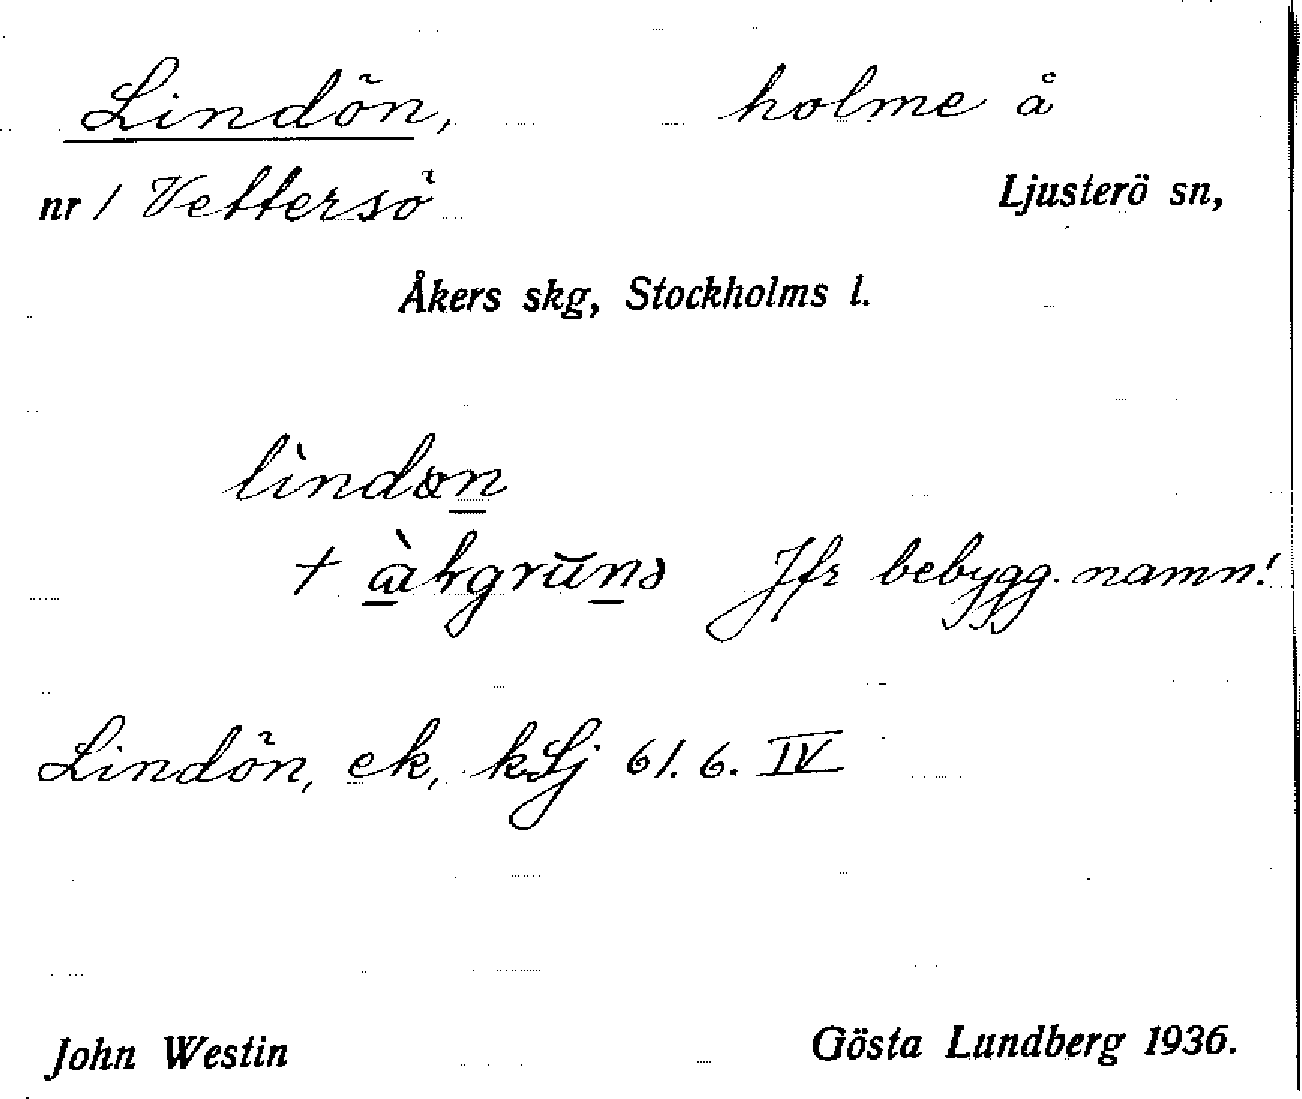 Lindön, holme å
nr 1 Vettersö Ljusterö sn,
Åkers skg, Stockholms l.
lìndøn
+ Jfr bebygg. namn!
Lindön, ek, kLj 61. 6. IV
John Westin Gösta Lundberg 1936.